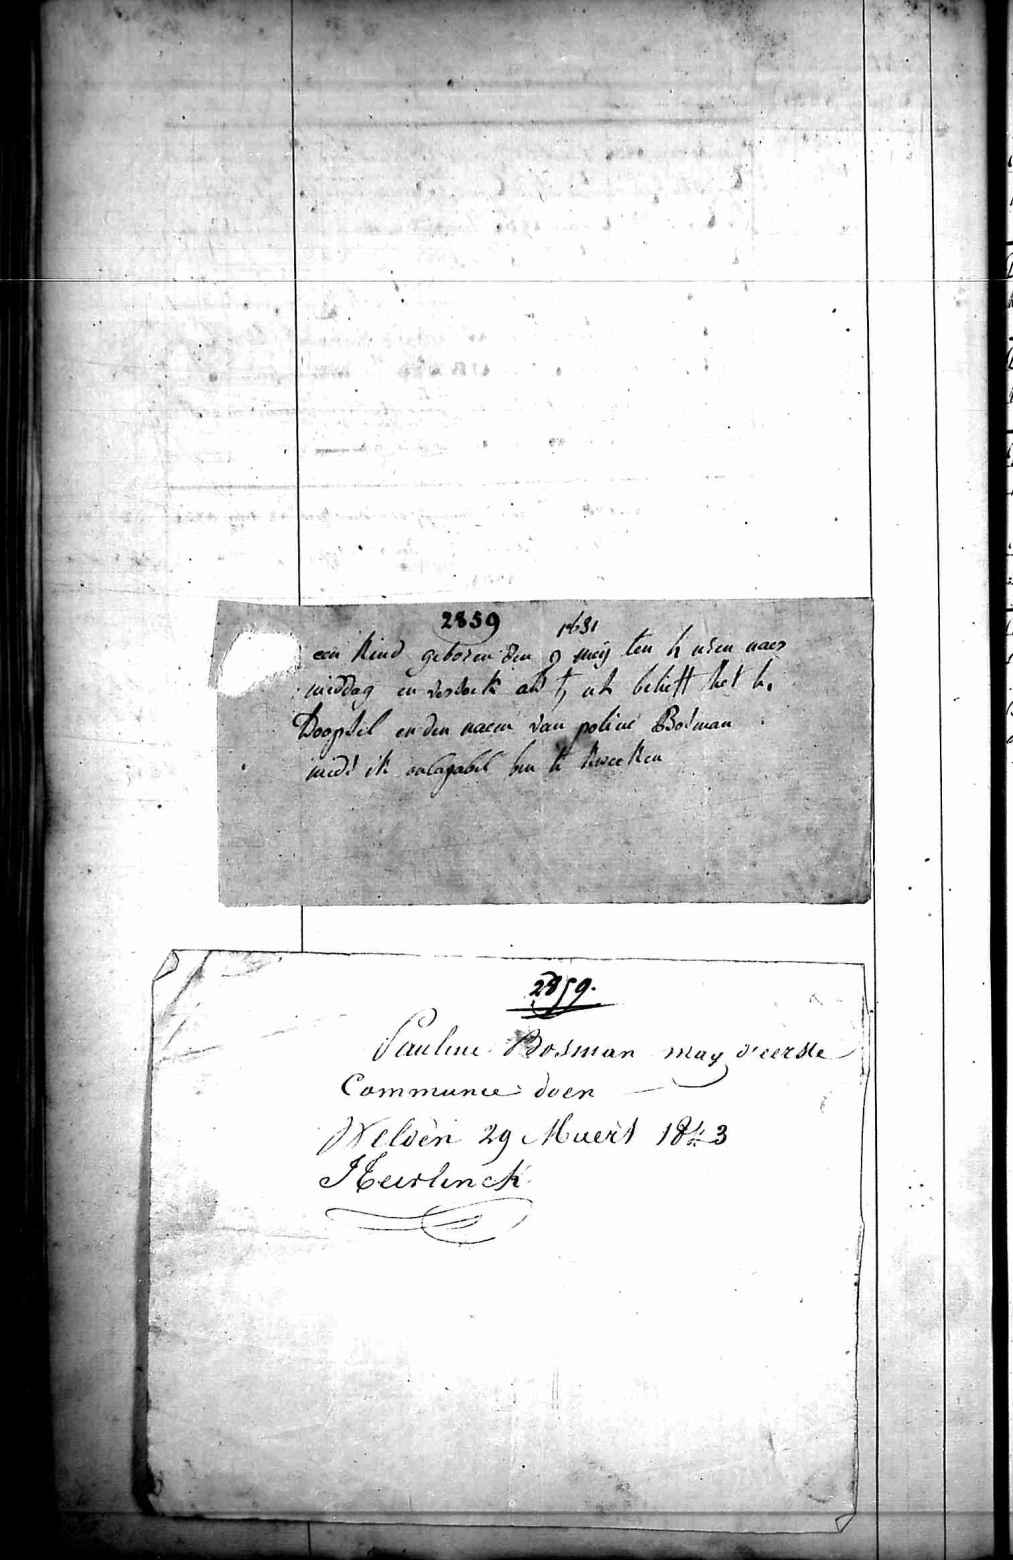 2859
1831
een kind geboren den 9 meij ten 4 uren naer
middag en versoeke als t u belieft het h.
Doopsel en den naem van poline Bosman
midts ik oncapabel ben te kweeken
2859.
Pauline Bosman may d'eerste
Communie doen
Welden 29 Maert 1843
Heirlinck